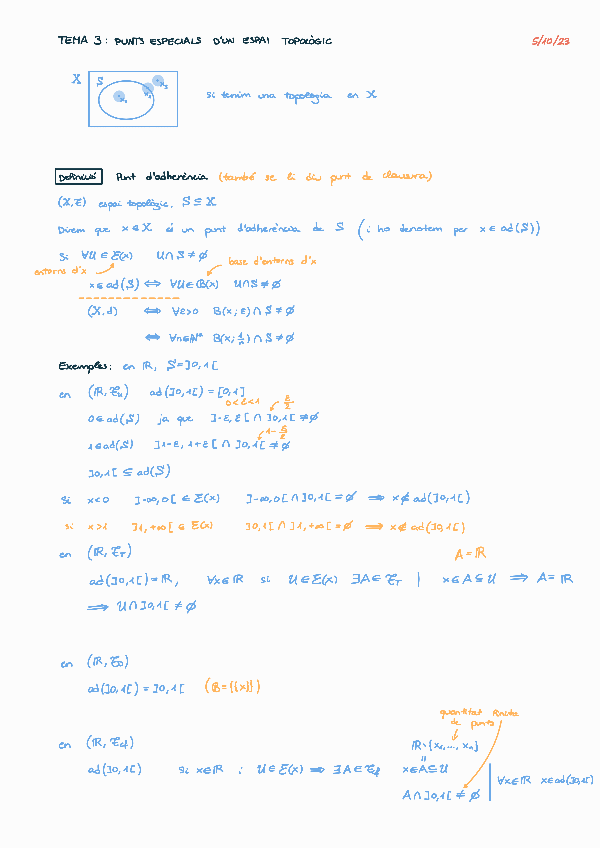 TEMA 3: PUNTS ESPECIALS D'UN ESPAI TOPOLÒGIC 5/10/23
X S
x₁ x₂ x₃
Si tenim una topologia en X
Definició Punt d'adherència (també se li diu punt de clausura)
(X,τ) espai topològic, S ⊆ X
Direm que x∈X és un punt d'adherència de S (i ho denotem per x∈ad(S))
Si ∀U∈ℰ(x) U∩S≠∅
entorns d'x
base d'entorns d'x
x∈ad(S) ⟺ ∀U∈ℬ(x) U∩S≠∅
(X,d) ⟺ ∀ε>0 B(x;ε)∩S≠∅
⟺ ∀n∈ℕ* B(x;1/n)∩S≠∅
Exemples: en ℝ, S=]0,1[
en (ℝ,τᵤ) ad(]0,1[)=[0,1]
0<ε<1 ε/2
0∈ad(S) ja que ]-ε,ε[∩]0,1[≠∅
1-ε/2
1∈ad(S) ]1-ε,1+ε[∩]0,1[≠∅
]0,1[⊆ad(S)
Si x<0 ]-∞,0[∈ℰ(x) ]-∞,0[∩]0,1[=∅ ⟹ x∉ad(]0,1[)
si x>1 ]1,+∞[∈ℰ(x) ]0,1[∩]1,+∞[=∅ ⟹ x∉ad(]0,1[)
en (ℝ,τ_T) A=ℝ
ad(]0,1[)=ℝ, ∀x∈ℝ si U∈ℰ(x) ∃A∈τ_T | x∈A⊆U ⟹ A=ℝ
⟹ U∩]0,1[≠∅
en (ℝ,τ_D)
ad(]0,1[)=]0,1[ (ℬ={{x}})
quantitat finita
de punts
en (ℝ,τ_cf) ℝ∖{x₁,...,xₙ}
ad(]0,1[) Si x∈ℝ i U∈ℰ(x) ⟹ ∃A∈τ_cf x∈A⊆U
A∩]0,1[≠∅ | ∀x∈ℝ x∈ad(]0,1[)